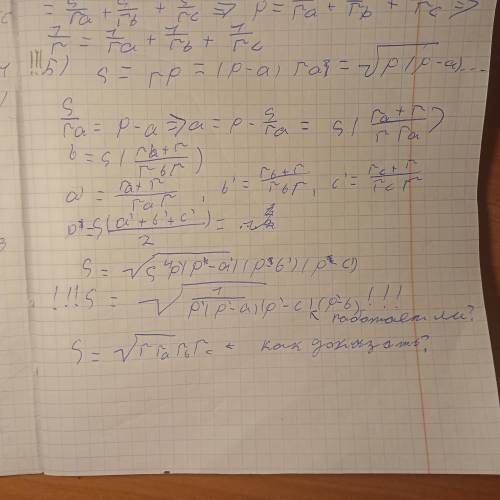 c = S/ra + S/rb + S/rc => p = S/ra + S/rb + S/rc =>
1/r = 1/ra + 1/rb + 1/rc
!!! Б) S = rp = (p-a) ra = √p(p-a)...
S/ra = p-a => a = p - S/ra = S(ra+r / r ra)
b = S(rb+r / rb r)
a' = ra+r / ra r, b' = rb+r / rb r, c' = rc+r / rc r
= S(a'+b'+c' / 2) =
S = √S⁴p'(p'-a')(p'-b')(p'-c')
!!! S = √1 / p'(p'-a)(p'-c)(p'-b) !!!
работает ли?
S = √r ra rb rc ← как доказать?